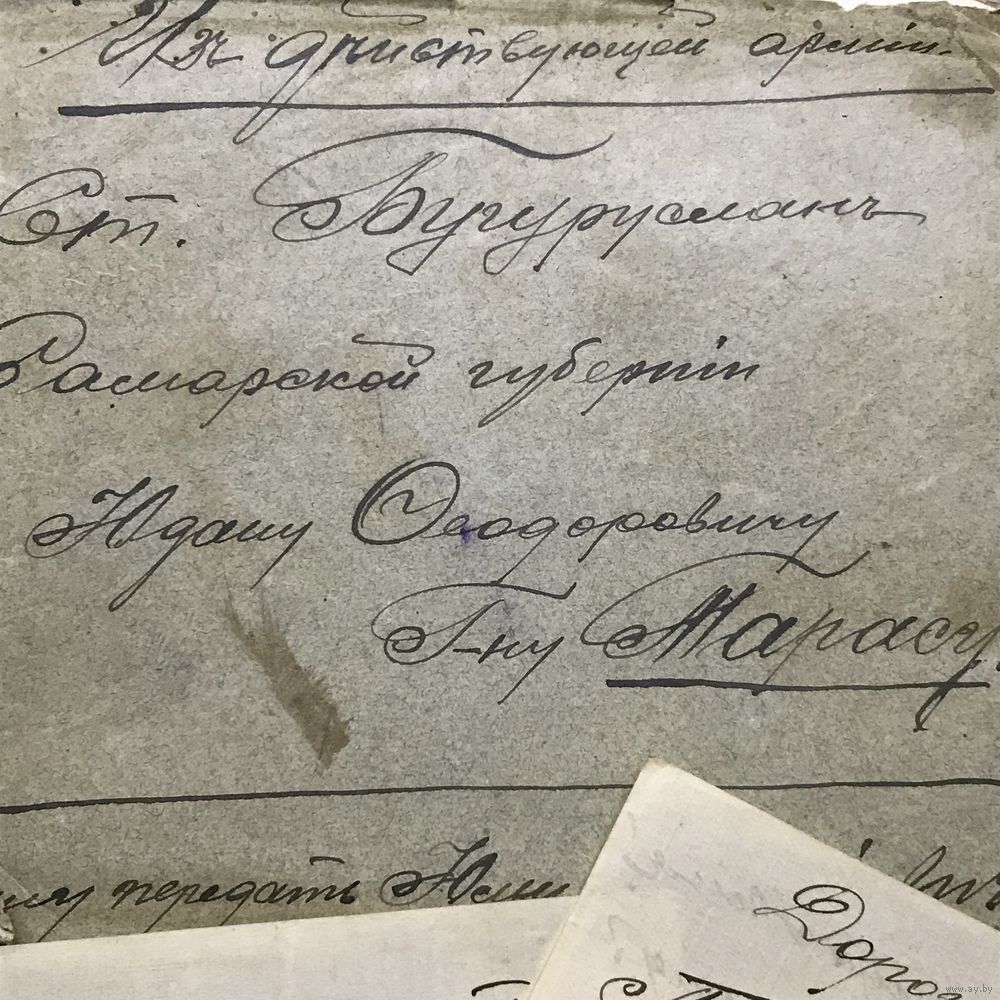 Изъ действующей арміи.
Ст. Бугурусланъ
Самарской губерніи
Юдашу Ѳеодоровичу
Г-ну Тарасу
передать
Доро
www.ay.by